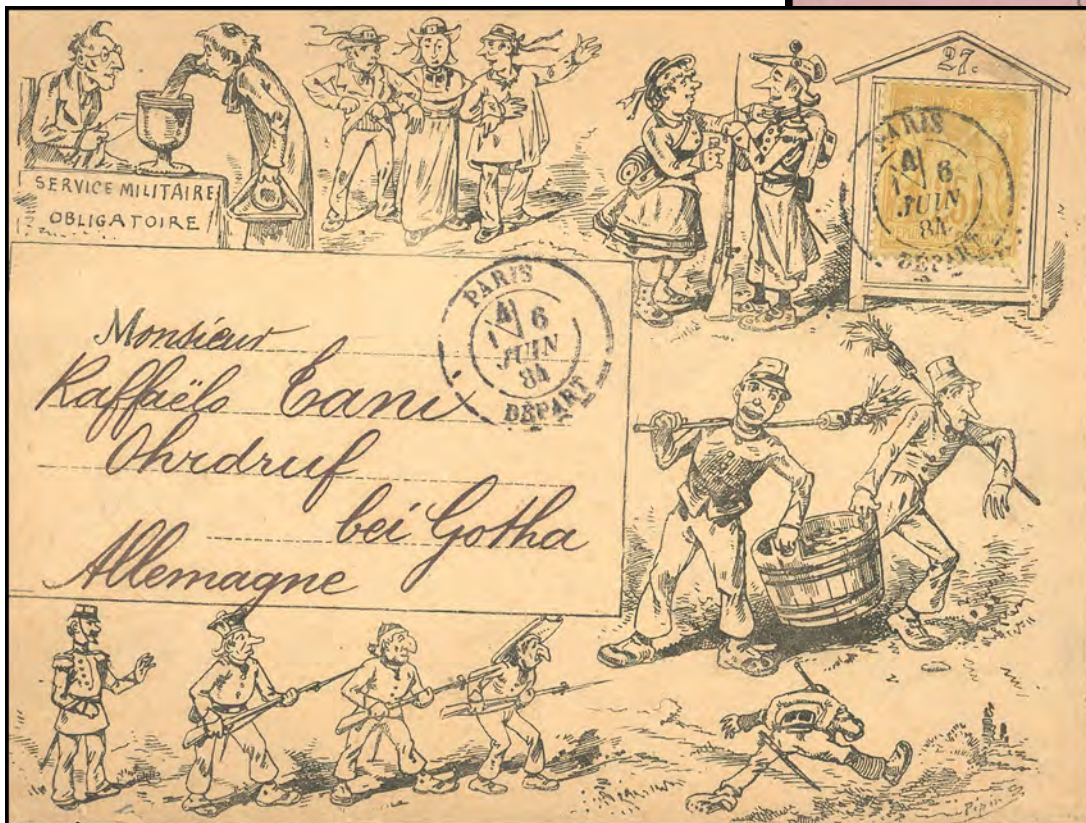 SERVICE MILITAIRE
OBLIGATOIRE
27c
PARIS
6
JUIN
84
DÉPART
PARIS
6
JUIN
84
DÉPART
Monsieur
Raffaëlo
Ohrdruf
bei Gotha
Allemagne
Pépin